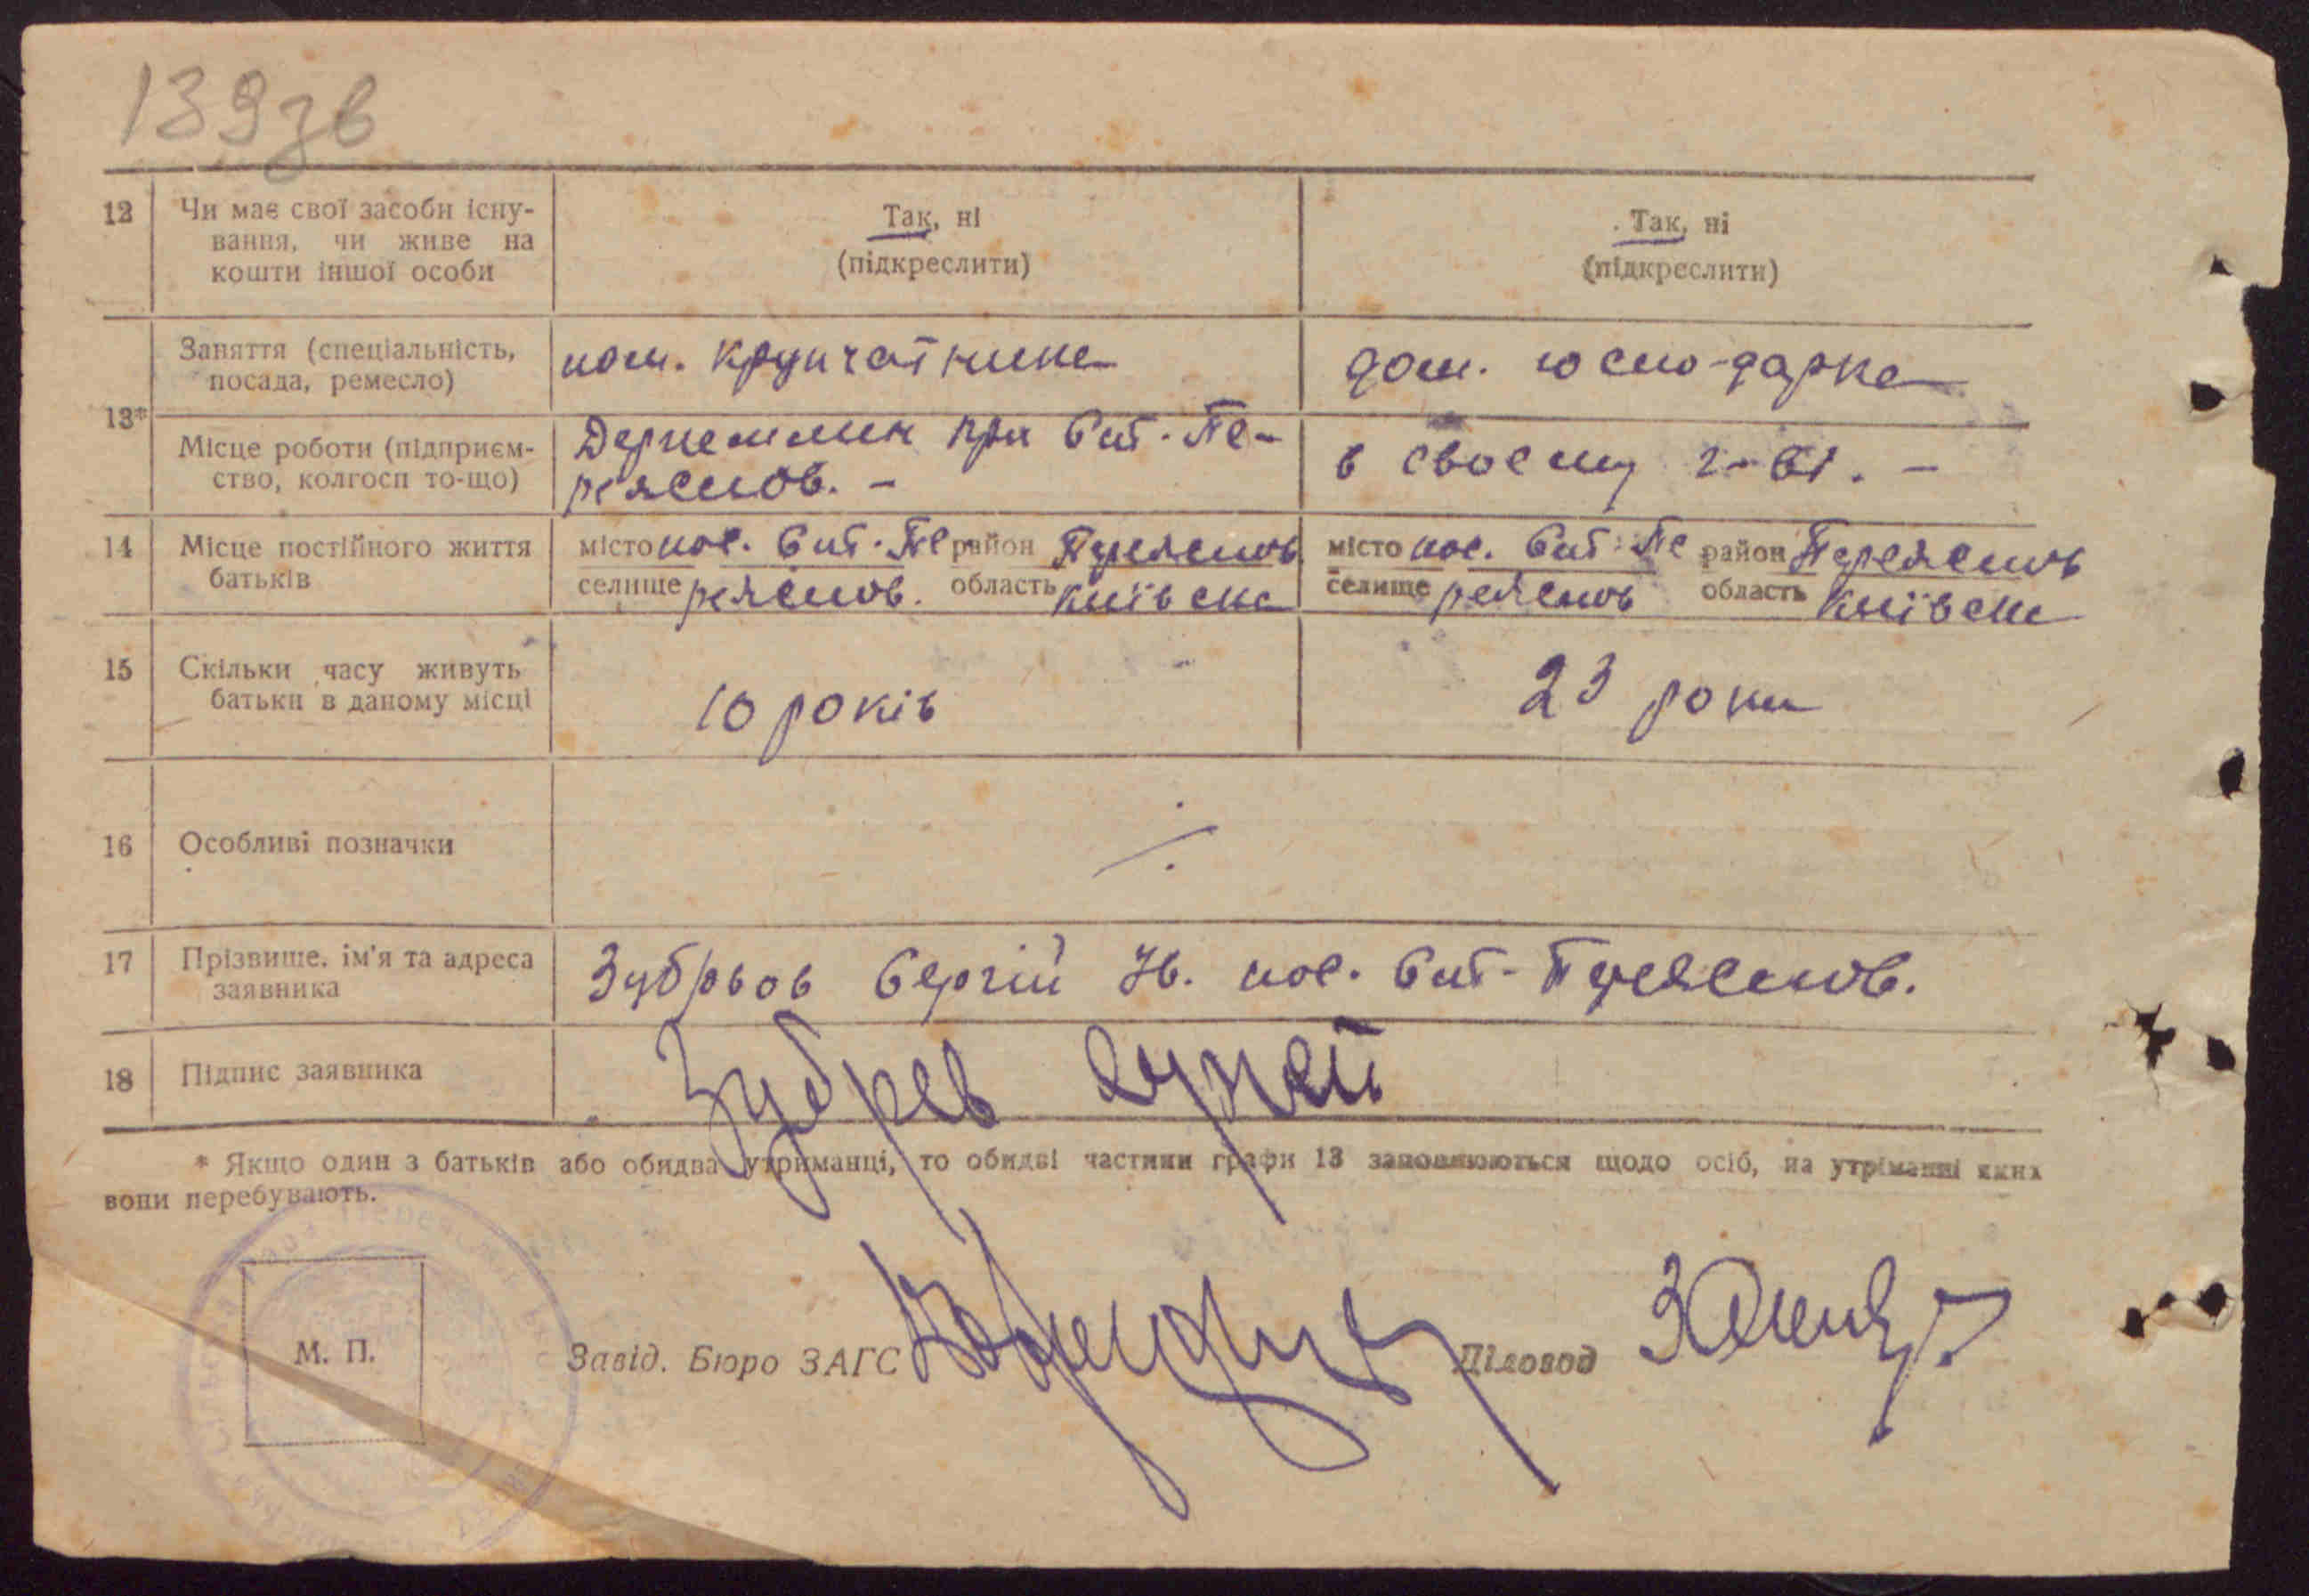 139зв
12 Чи має свої засоби існу-
вання, чи живе на
кошти іншої особи
Так, ні
(підкреслити)
Так, ні
(підкреслити)
13*
Заняття (спеціальність,
посада, ремесло)
пом. крупчатника
дом. госпо-дарка
Місце роботи (підприєм-
ство, колгосп то-що)
Держмлин при Вит. Пе-
реяслов. -
в своєму г-ві. -
14 Місце постійного життя
батьків
місто пос. Вит. Пе район Переяслов
селище реяслов. область Київська
місто пос. Вит. Пе район Переяслов
селище реяслов область Київська
15 Скільки часу живуть
батьки в даному місці
10 років
23 роки
16 Особливі позначки
17 Прізвище, ім'я та адреса
заявника
Зубрьов Сергій Ів. пос. Вит-Переяслов.
18 Підпис заявника
Зубрев Сергей
* Якщо один з батьків або обидва утриманці, то обидві частини графи 13 заповнюються щодо осіб, на утріманні яких
вони перебувають.
М. П.
Завід. Бюро ЗАГС
Діловод